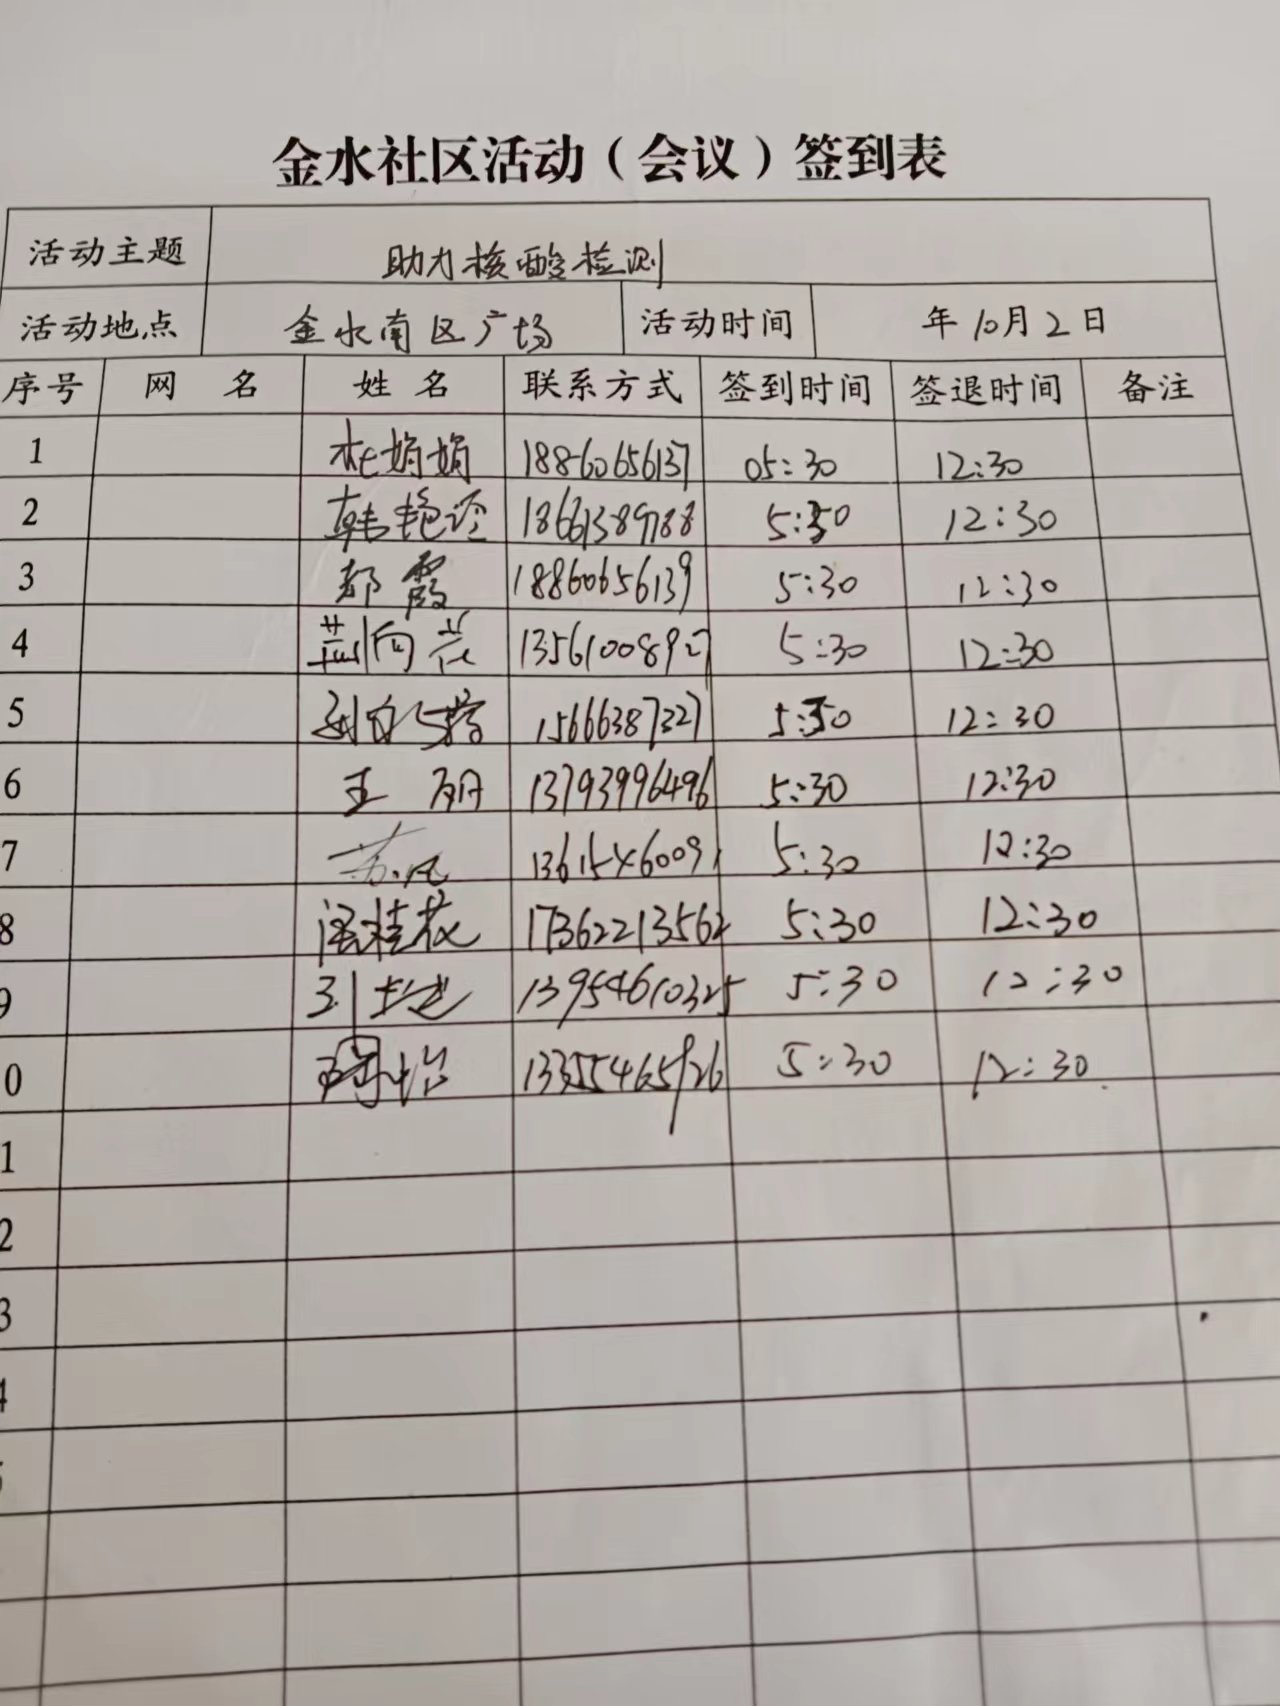 金水社区活动（会议）签到表
活动主题 助力核酸检测
活动地点 金水南区广场 活动时间 年10月2日
序号 网 名 姓 名 联系方式 签到时间 签退时间 备注
1 杜娟娟 18860656137 05:30 12:30
2 韩艳 18661389788 5:30 12:30
3 郝霞 18860656139 5:30 12:30
4 向花 13561008927 5:30 12:30
5 15666387327 5:30 12:30
6 王丽 13793996496 5:30 12:30
7 苏凤 13615460091 5:30 12:30
8 桂花 17362213562 5:30 12:30
9 13954610325 5:30 12:30
0 13355465926 5:30 12:30
1
2
3
4
5